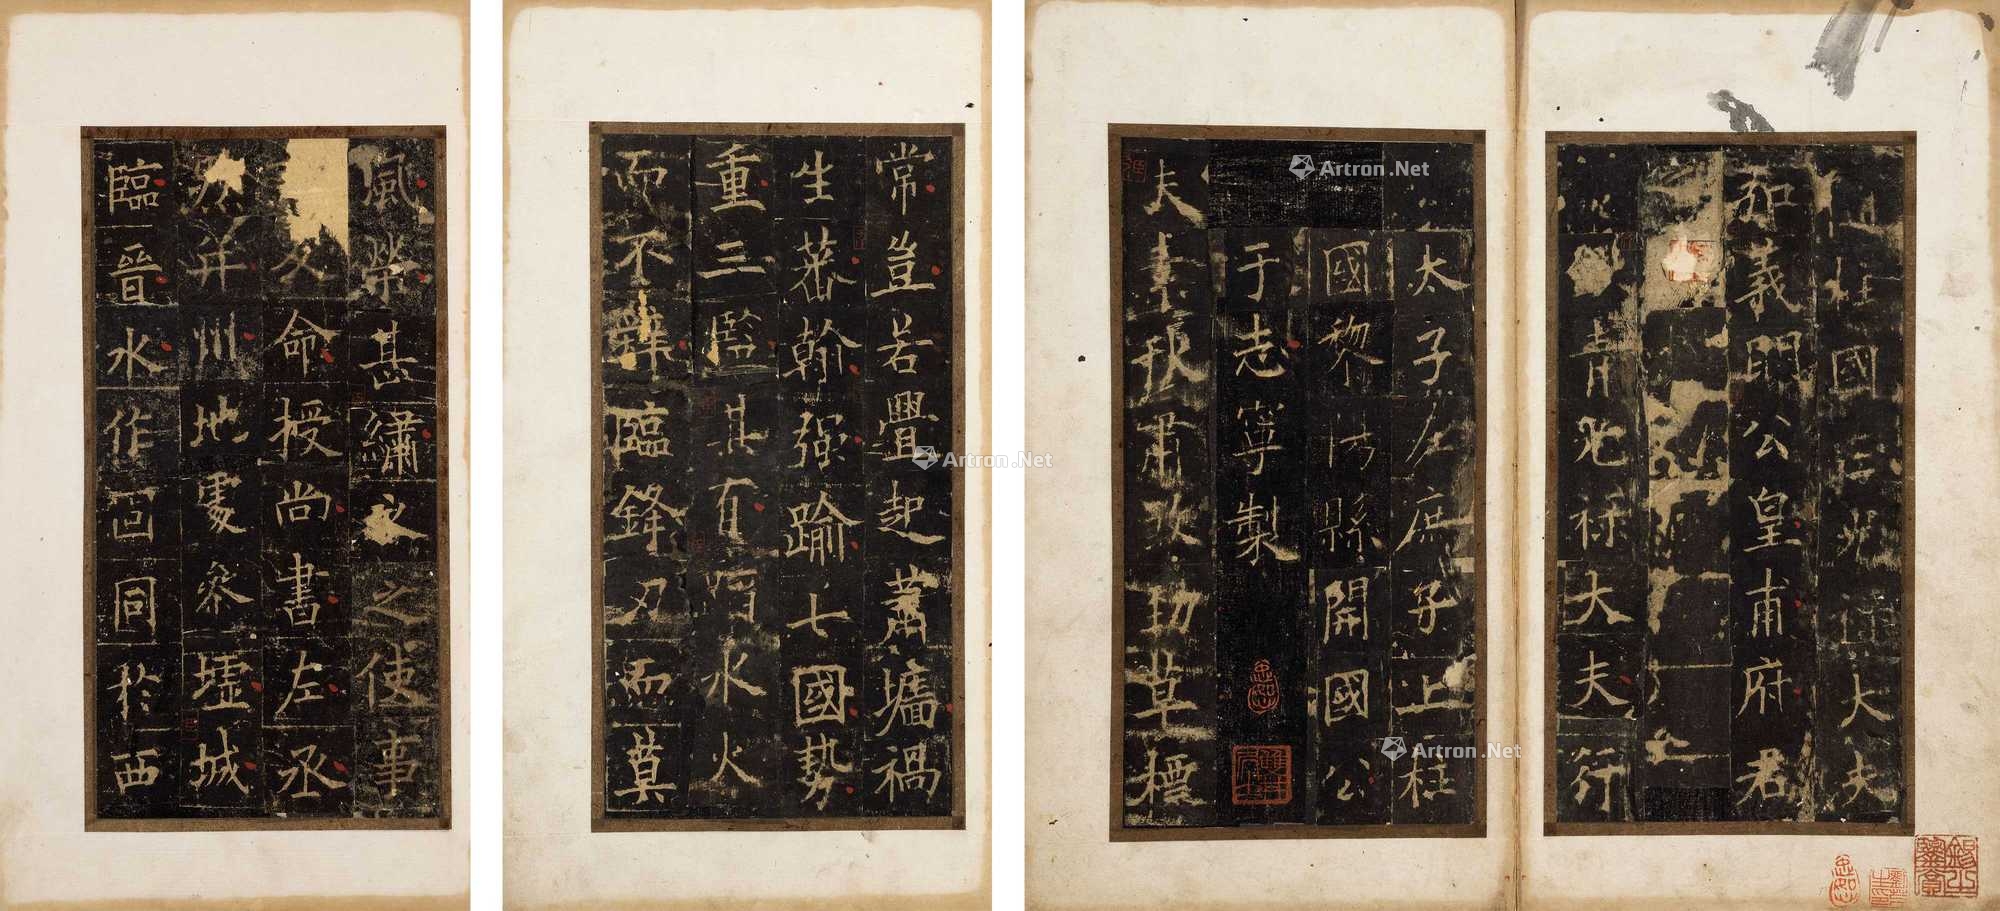 柱國左光祿大夫
弘義明公皇甫府君
銀青光祿大夫行
太子左庶子上柱
國黎陽縣開國公
于志寧製
夫素秋肅煞勁草標
常豈若釁起蕭墻禍
生蕃翰強踰七國勢
重三監其有蹈水火
而不辭臨鋒刃而莫
風榮甚繡衣之使事
久命授尚書左丞
然并州地處參墟城
臨晉水作固同於西
Artron.Net
Artron.Net
Artron.Net